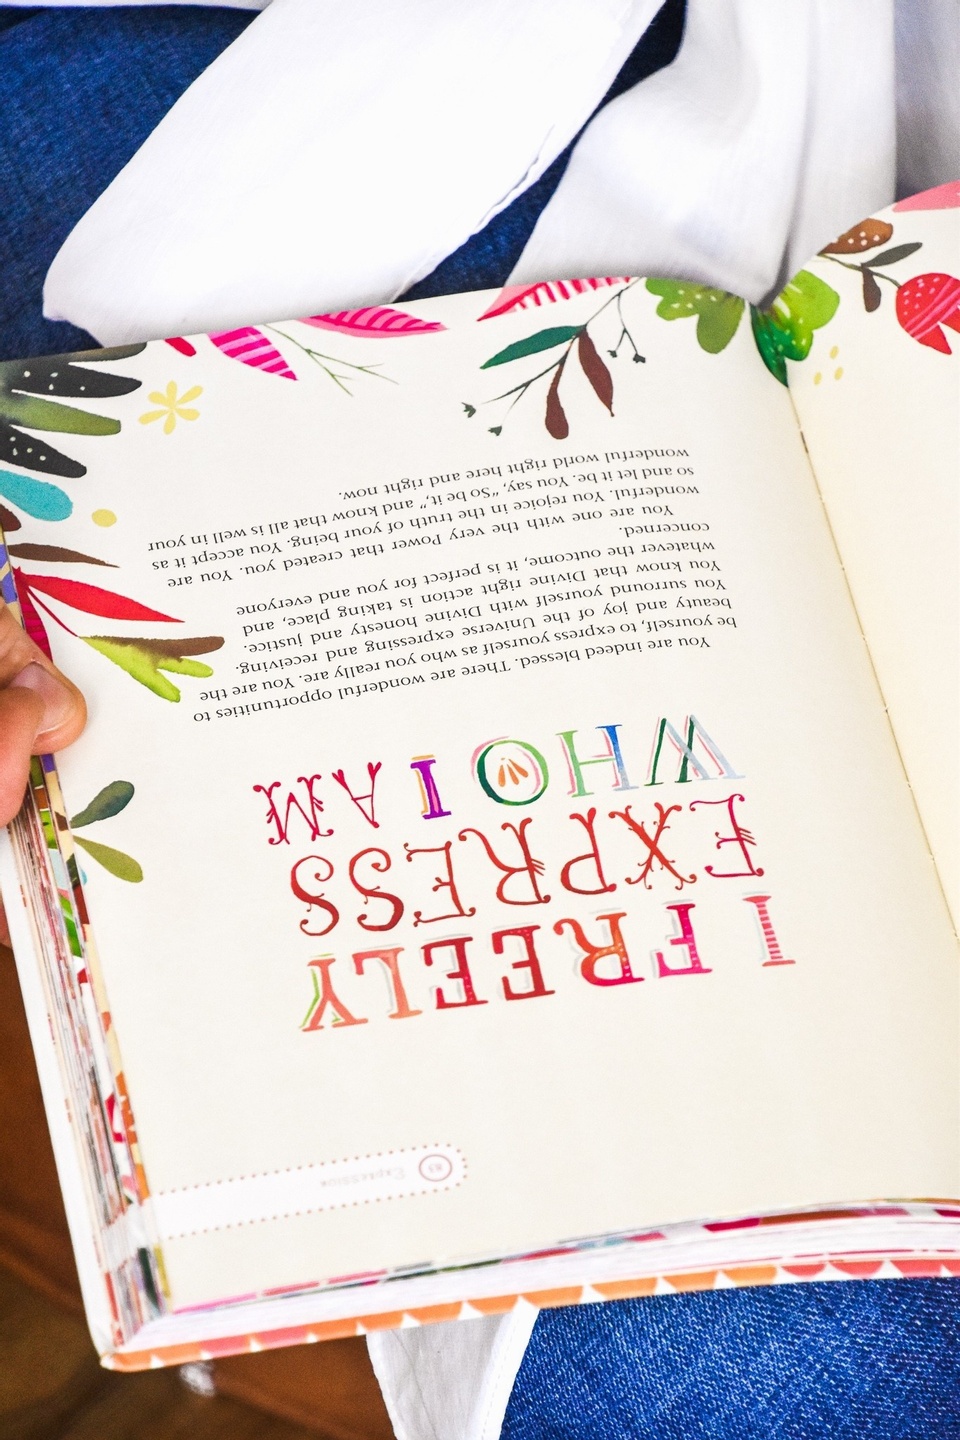 Expression
I FREELY
EXPRESS
WHO I AM
You are indeed blessed. There are wonderful opportunities to
be yourself, to express yourself as who you really are. You are the
beauty and joy of the Universe expressing and receiving.
You surround yourself with Divine honesty and justice.
You know that Divine right action is taking place, and
whatever the outcome, it is perfect for you and everyone
concerned.
You are one with the very Power that created you. You are
wonderful. You rejoice in the truth of your being. You accept it as
so and let it be. You say, "So be it," and know that all is well in your
wonderful world right here and right now.